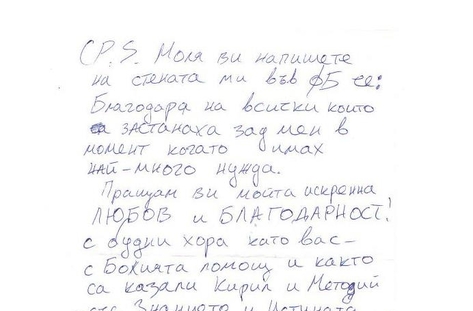 (P.S. Моля ви напишете
на стената ми във ФБ се:
Благодаря на всички които
застанаха зад мен в
момент когато имах
най-много нужда.
Пращам ви мойта искренна
ЛЮБОВ и БЛАГОДАРНОСТ!
с будни хора като вас –
с Божията помощ и както
са казали Кирил и Методий
със Знанието и Истината